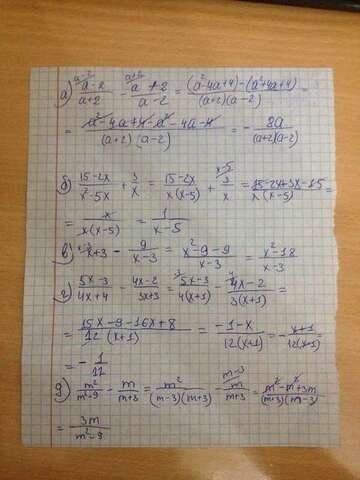 а) (a-2)/(a+2) - (a+2)/(a-2) = ((a²-4a+4)-(a²+4a+4))/((a+2)(a-2)) =
= (a²-4a+4-a²-4a-4)/((a+2)(a-2)) = - 8a/((a+2)(a-2))
б) (15-2x)/(x²-5x) + 3/x = (15-2x)/(x(x-5)) + 3/x = (15-2x+3x-15)/(x(x-5)) =
= x/(x(x-5)) = 1/(x-5)
в) x+3 - 9/(x-3) = (x²-9-9)/(x-3) = (x²-18)/(x-3)
г) (5x-3)/(4x+4) - (4x-2)/(3x+3) = (5x-3)/(4(x+1)) - (4x-2)/(3(x+1)) =
= (15x-9-16x+8)/(12(x+1)) = (-1-x)/(12(x+1)) = - (x+1)/(12(x+1)) =
= - 1/12
д) m²/(m²-9) - m/(m+3) = m²/((m-3)(m+3)) - m/(m+3) = (m²-m²+3m)/((m+3)(m-3)) =
= 3m/(m²-9)